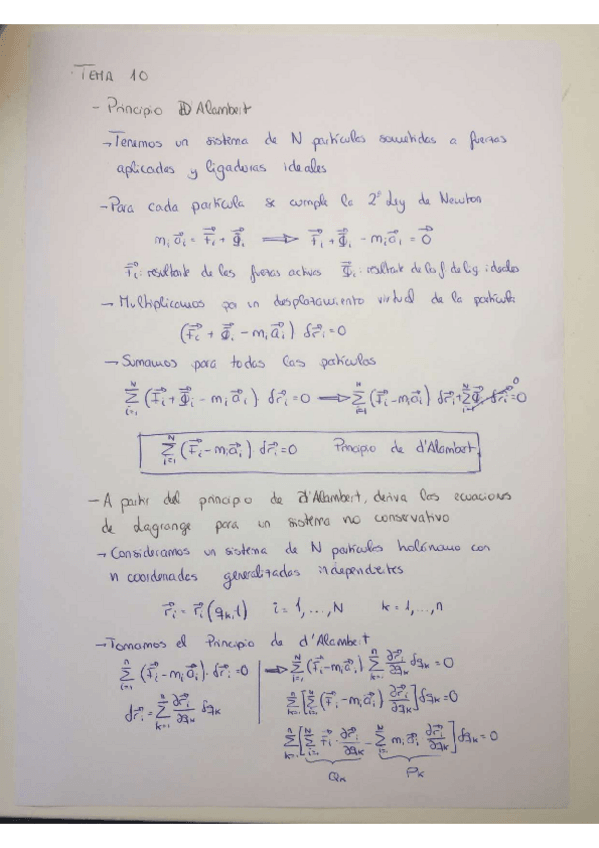 TEMA 10
- Principio D'Alambert
→ Tenemos un sistema de N partículas sometidas a fuerzas
aplicadas y ligadoras ideales
- Para cada partícula se cumple la 2ª Ley de Newton
m_i a⃗_i = F⃗_i + Φ⃗_i ⟹ F⃗_i + Φ⃗_i - m_i a⃗_i = 0⃗
F⃗_i: resultante de las fuerzas activas Φ⃗_i: resultante de las f de lig ideales
→ Multiplicamos por un desplazamiento virtual de la partícula
(F⃗_i + Φ⃗_i - m_i a⃗_i) δr⃗_i = 0
→ Sumamos para todas las partículas
∑_{i=1}^{N} (F⃗_i + Φ⃗_i - m_i a⃗_i) · δr⃗_i = 0 → ∑_{i=1}^{N} (F⃗_i - m_i a⃗_i) δr⃗_i + ∑_{i=1}^{N} Φ⃗_i δr⃗_i = 0
∑_{i=1}^{N} (F⃗_i - m_i a⃗_i) · δr⃗_i = 0 Principio de d'Alambert
- A partir del principio de d'Alambert, deriva las ecuaciones
de Lagrange para un sistema no conservativo
→ Consideramos un sistema de N partículas holónomo con
n coordenadas generalizadas independientes
r⃗_i = r⃗_i (q_k, t) i = 1, ..., N k = 1, ..., n
→ Tomamos el Principio de d'Alambert
∑_{i=1}^{n} (F⃗_i - m_i a⃗_i) · δr⃗_i = 0 → ∑_{i=1}^{N} (F⃗_i - m_i a⃗_i) ∑_{k=1}^{n} ∂r⃗_i/∂q_k δq_k = 0
δr⃗_i = ∑_{k=1}^{n} ∂r⃗_i/∂q_k δq_k
∑_{k=1}^{n} [∑_{i=1}^{N} (F⃗_i - m_i a⃗_i) ∂r⃗_i/∂q_k] δq_k = 0
∑_{k=1}^{n} [∑_{i=1}^{N} F⃗_i · ∂r⃗_i/∂q_k - ∑_{i=1}^{N} m_i a⃗_i · ∂r⃗_i/∂q_k] δq_k = 0
Q_k P_k